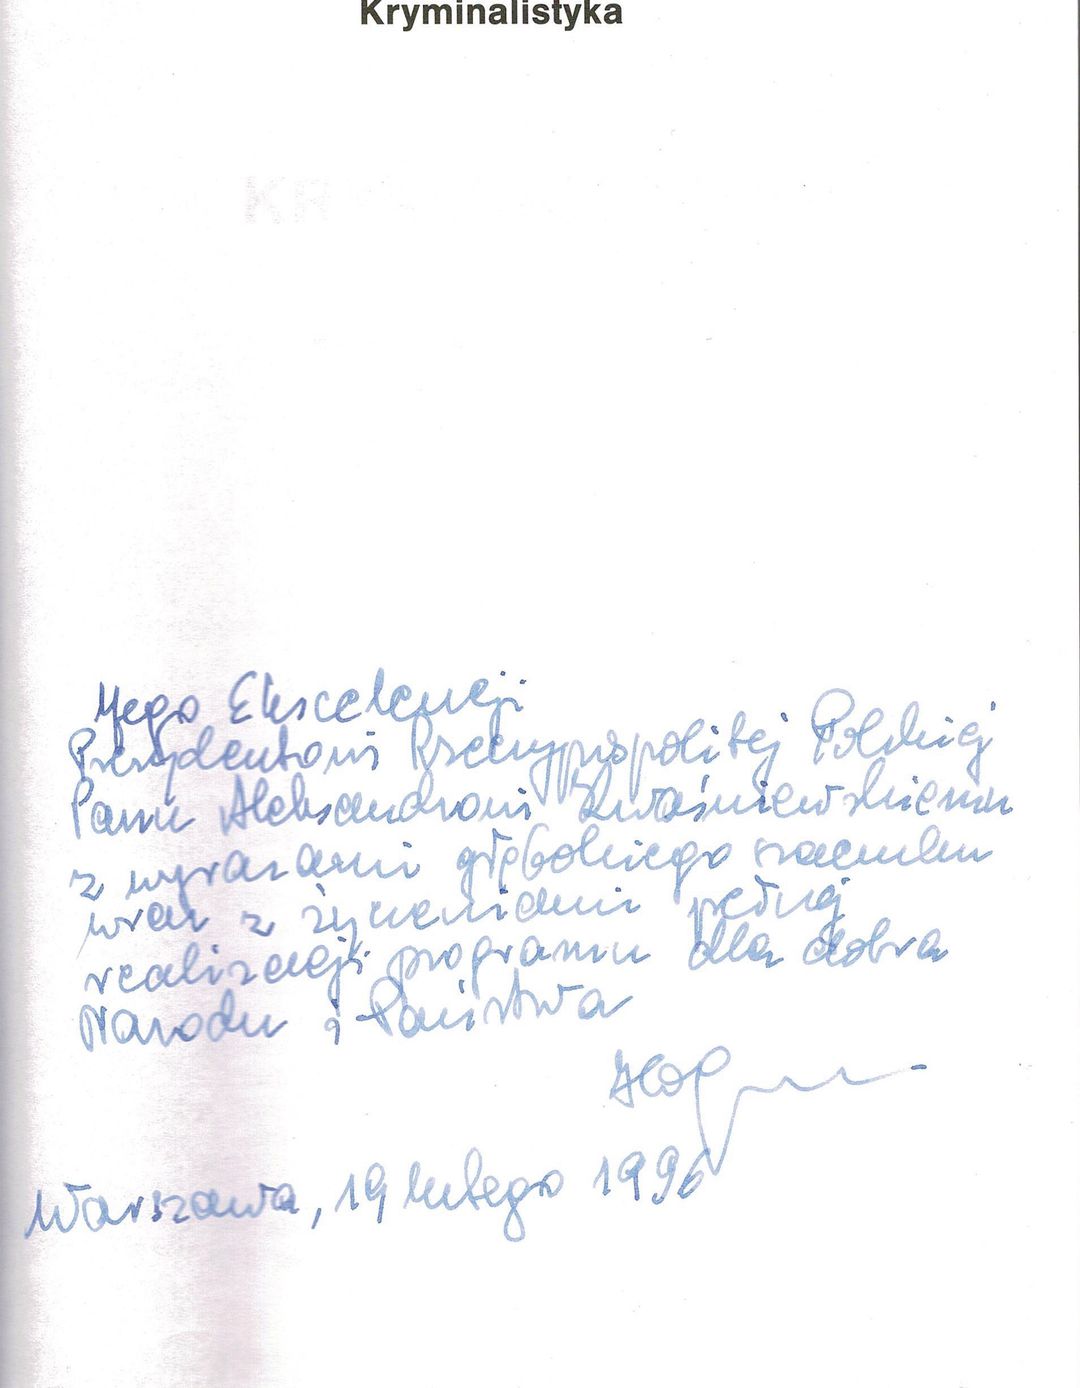 Kryminalistyka
KR
Jego Ekscelencji
Prezydentowi Rzeczypospolitej Polskiej
Panu Aleksandrowi Kwaśniewskiemu
z wyrazami głębokiego szacunku
wraz z życzeniami pełnej
realizacji programu dla dobra
Narodu i Państwa
Warszawa, 19 lutego 1996